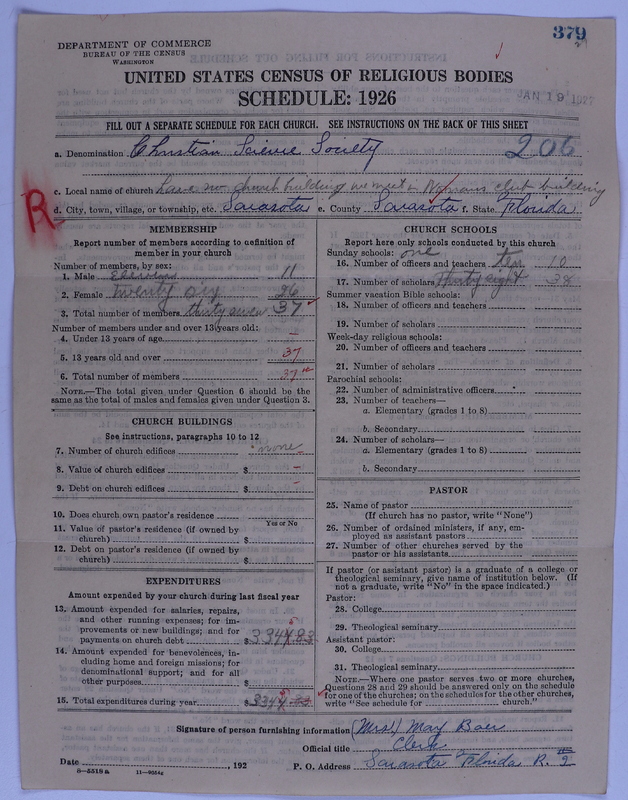 379
DEPARTMENT OF COMMERCE
BUREAU OF THE CENSUS
WASHINGTON
UNITED STATES CENSUS OF RELIGIOUS BODIES
SCHEDULE: 1926
JAN 19 1927
FILL OUT A SEPARATE SCHEDULE FOR EACH CHURCH. SEE INSTRUCTIONS ON THE BACK OF THIS SHEET
a. Denomination Christian Science Society 206
c. Local name of church have no church building we meet in Womans club building
R
d. City, town, village, or township, etc. Sarasota e. County Sarasota f. State Florida
MEMBERSHIP
Report number of members according to definition of
member in your church
Number of members, by sex:
1. Male Eleven 11
2. Female Twenty six 26
3. Total number of members thirty seven 37
Number of members under and over 13 years old:
4. Under 13 years of age –
5. 13 years old and over 37
6. Total number of members 37
NOTE.—The total given under Question 6 should be the
same as the total of males and females given under Question 3.
CHURCH BUILDINGS
See instructions, paragraphs 10 to 12
7. Number of church edifices none –
8. Value of church edifices $ –
9. Debt on church edifices $ –
10. Does church own pastor's residence
Yes or No
11. Value of pastor's residence (if owned by
church) $
12. Debt on pastor's residence (if owned by
church) $
EXPENDITURES
Amount expended by your church during last fiscal year
13. Amount expended for salaries, repairs,
and other running expenses; for im-
provements or new buildings; and for
payments on church debt $
14. Amount expended for benevolences, in-
cluding home and foreign missions; for
denominational support; and for all
other purposes $
15. Total expenditures during year $
CHURCH SCHOOLS
Report here only schools conducted by this church
Sunday schools: one
16. Number of officers and teachers ten 10
17. Number of scholars Thirty eight 38
Summer vacation Bible schools:
18. Number of officers and teachers
19. Number of scholars
Week-day religious schools:
20. Number of officers and teachers
21. Number of scholars
Parochial schools:
22. Number of administrative officers
23. Number of teachers—
a. Elementary (grades 1 to 8)
b. Secondary
24. Number of scholars—
a. Elementary (grades 1 to 8)
b. Secondary
PASTOR
25. Name of pastor
(If church has no pastor, write "None")
26. Number of ordained ministers, if any, em-
ployed as assistant pastors
27. Number of other churches served by the
pastor or his assistants
If pastor (or assistant pastor) is a graduate of a college or
theological seminary, give name of institution below. (If
not a graduate, write "No" in the space indicated.)
Pastor:
28. College
29. Theological seminary
Assistant pastor:
30. College
31. Theological seminary
NOTE.—Where one pastor serves two or more churches,
Questions 28 and 29 should be answered only on the schedule
for one of the churches; on the schedules for the other churches,
write "See schedule for church."
Signature of person furnishing information (Mrs) May Baer
Official title Clerk
Date , 192 P. O. Address Sarasota Florida R. # 2
8-5518 a 11-9054g